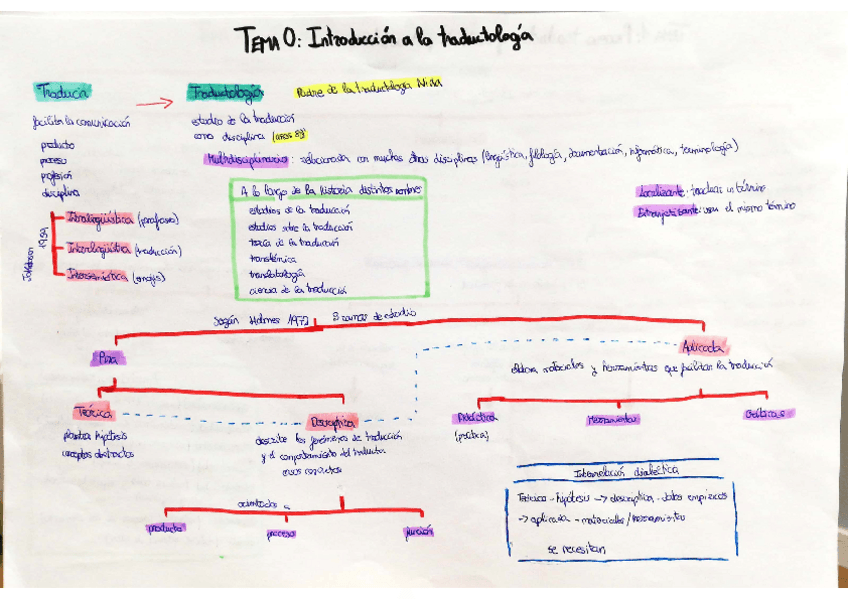 TEMA 0: Introducción a la traductología
Traducir
Traductología
Padre de la traductología Nida
facilitar la comunicación
producto
proceso
profesión
disciplina
estudio de la traducción
como disciplina (años 80)
Multidisciplinaria: relacionada con muchas otras disciplinas (lingüística, filología, documentación, informática, terminología)
Jakobson 1959
Intralingüística (parafraseo)
Interlingüística (traducción)
Intersemiótica (emojis)
A lo largo de la historia distintos nombres
estudios de la traducción
estudios sobre la traducción
teoría de la traducción
translémica
translatología
ciencia de la traducción
: traducir un término
Extranjerizante: usar el mismo término
Según Holmes 1972 2 ramas de estudio
Pura
Aplicada
elabora materiales y herramientas que facilitan la traducción
Teórica
plantea hipótesis
conceptos abstractos
Descriptiva
describe los fenómenos de traducción
y el comportamiento del traductor
Didáctica
(práctica)
Herramientas
Críticas
orientados
producto
proceso
función
Interrelación dialéctica
Teórica - hipótesis -> descriptiva - datos empíricos
-> aplicada - materiales/herramientas
se necesitan